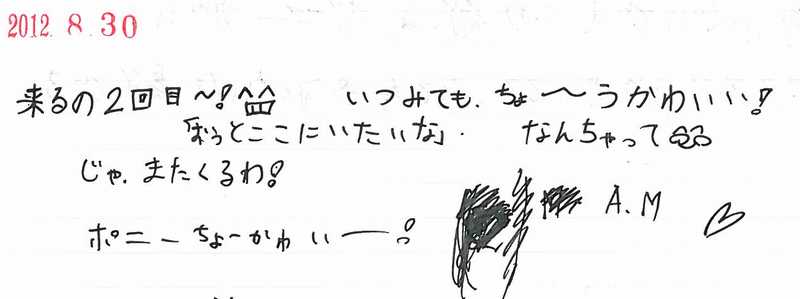 2012.8.30
来るの2回目〜! いつみても、ちょ〜うかわいい!
「ずっとここにいたいな」. なんちゃって
じゃ、またくるわ!
ポニーちょーかわいー! A.M